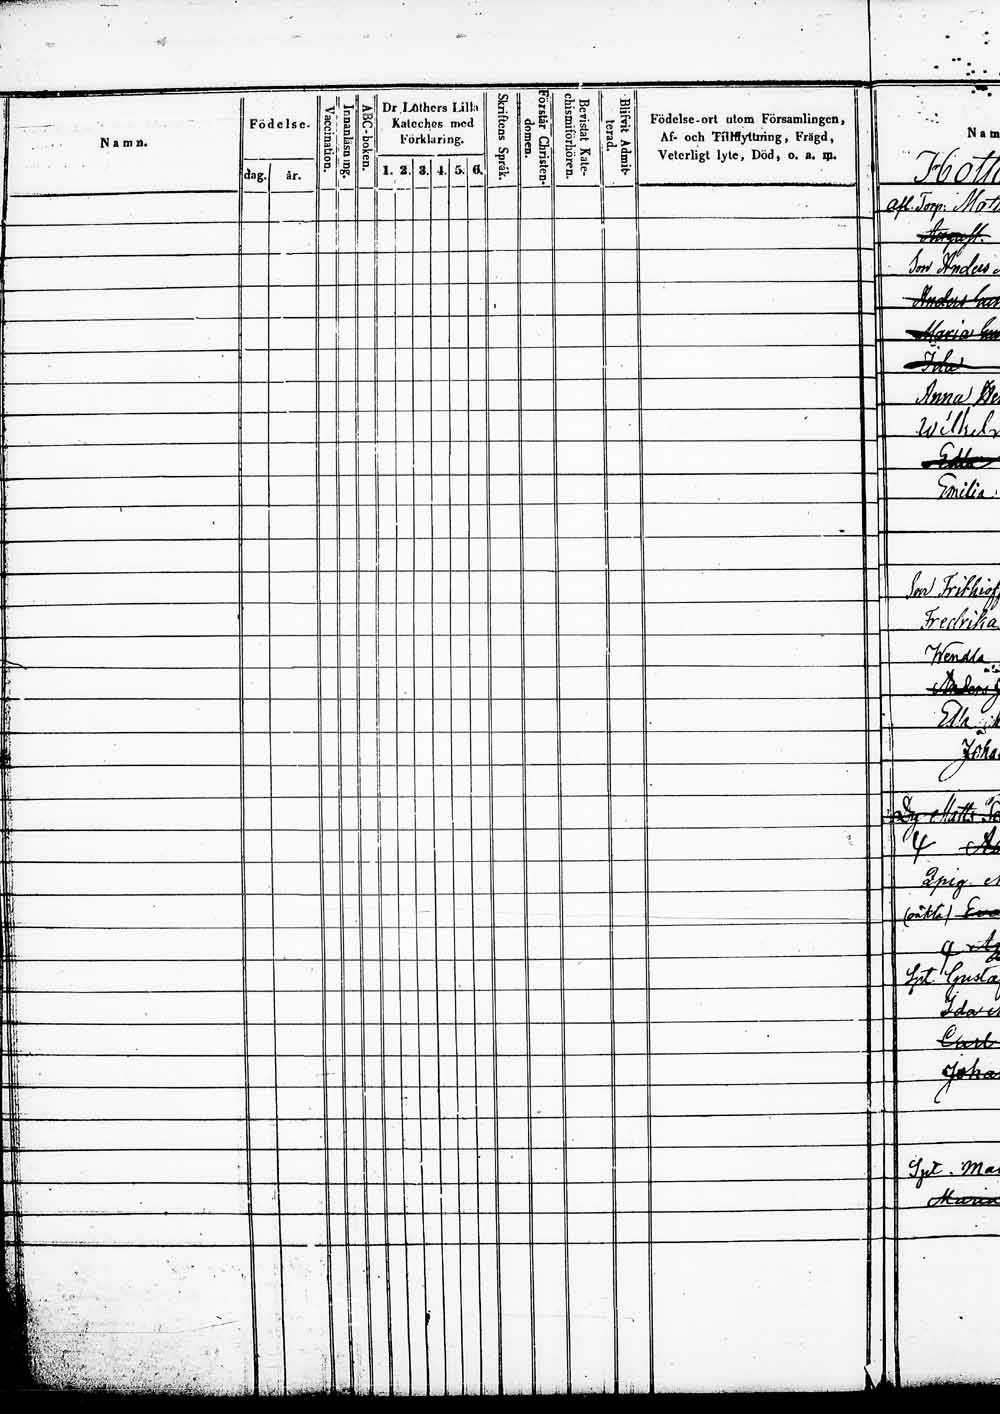 Namn.
Födelse-
dag.
år.
Vaccination.
Innanläsning.
ABC-boken.
Dr Luthers Lilla
Kateches med
Förklaring.
1. 2. 3. 4. 5. 6.
Skriftens Språk.
Förstår Christen-
domen.
Bevistat Kate-
chismiförhören.
Blifvit Admit-
terad.
Födelse-ort utom Församlingen,
Af- och Tillflyttning, Frägd,
Veterligt lyte, Död, o. a. m.
Nam
afl. Torp.
August.
Son Anders
Anders
Maria
Ida
Anna
Wilhel
Edla
Emilia
Son Frithiof
Fredrika
Wendla
Anders
Edla
Joha
Matts
(oäkta)
Gustaf
Ida
Carl
Joha
Maria